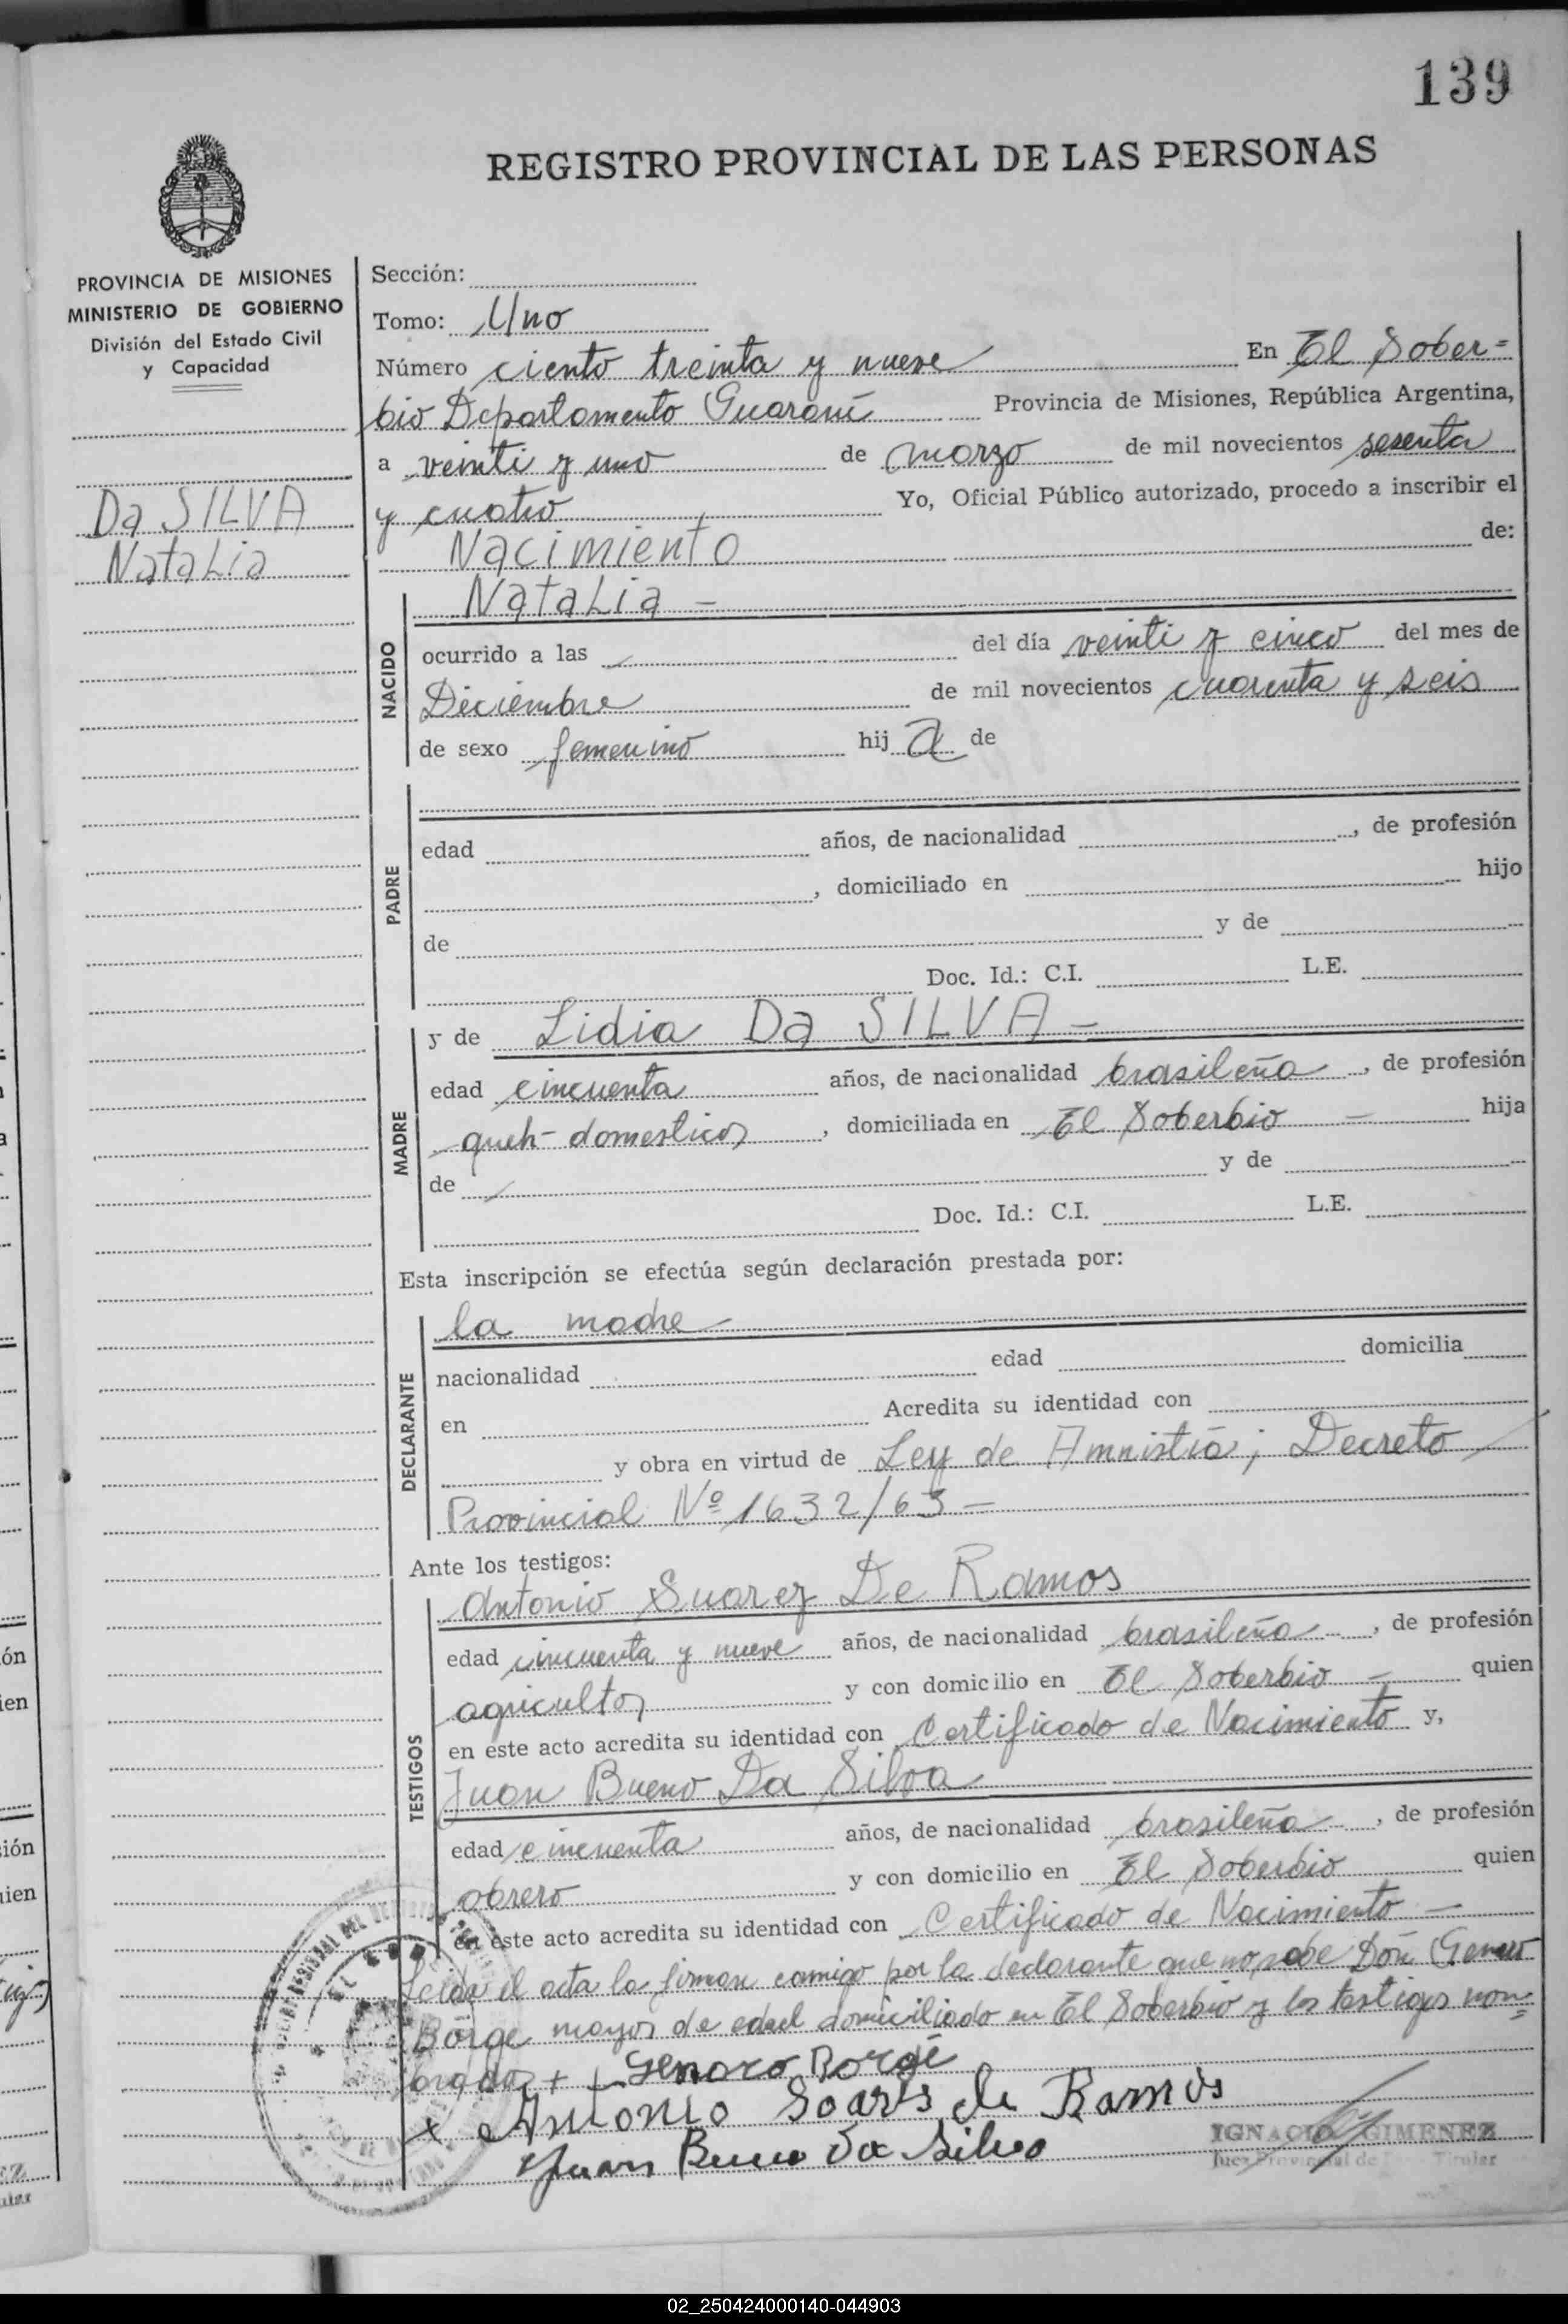 139
REGISTRO PROVINCIAL DE LAS PERSONAS
PROVINCIA DE MISIONES
MINISTERIO DE GOBIERNO
División del Estado Civil
y Capacidad
Da SILVA
Natalia
Sección:
Tomo: Uno
Número ciento treinta y nueve En El Sober=
bio Departamento Guaraní Provincia de Misiones, República Argentina,
a veinti y uno de marzo de mil novecientos sesenta
y cuatro Yo, Oficial Público autorizado, procedo a inscribir el
Nacimiento de:
NACIDO
Natalia -
ocurrido a las del día veinti y cinco del mes de
Diciembre de mil novecientos cuarenta y seis
de sexo femenino hij a de
PADRE
edad años, de nacionalidad , de profesión
, domiciliado en hijo
de y de
Doc. Id.: C.I. L.E.
MADRE
y de Lidia Da SILVA -
edad cincuenta años, de nacionalidad brasileña , de profesión
queh- domesticos , domiciliada en El Soberbio - hija
de y de
Doc. Id.: C.I. L.E.
Esta inscripción se efectúa según declaración prestada por:
DECLARANTE
la madre
nacionalidad edad domicilia
en Acredita su identidad con
y obra en virtud de Ley de Amnistía; Decreto
Provincial Nº 1632/63 -
Ante los testigos:
TESTIGOS
Antonio Suarez De Ramos
edad cincuenta y nueve años, de nacionalidad brasileña , de profesión
agricultor y con domicilio en El Soberbio - quien
en este acto acredita su identidad con Certificado de Nacimiento y,
Juan Bueno Da Silva
edad cincuenta años, de nacionalidad brasileña , de profesión
obrero y con domicilio en El Soberbio quien
en este acto acredita su identidad con Certificado de Nacimiento -
Leida el acta la firman conmigo por la declarante que no sabe Don Genaro
Borge mayor de edad domiciliado en El Soberbio y los testigos nom=
brados + + Genaro Borge
x Antonio Soares de Ramos
Juan Bueno Da Silva
IGNACIO GIMENEZ
Juez Provincial de Titular
02_250424000140-044903